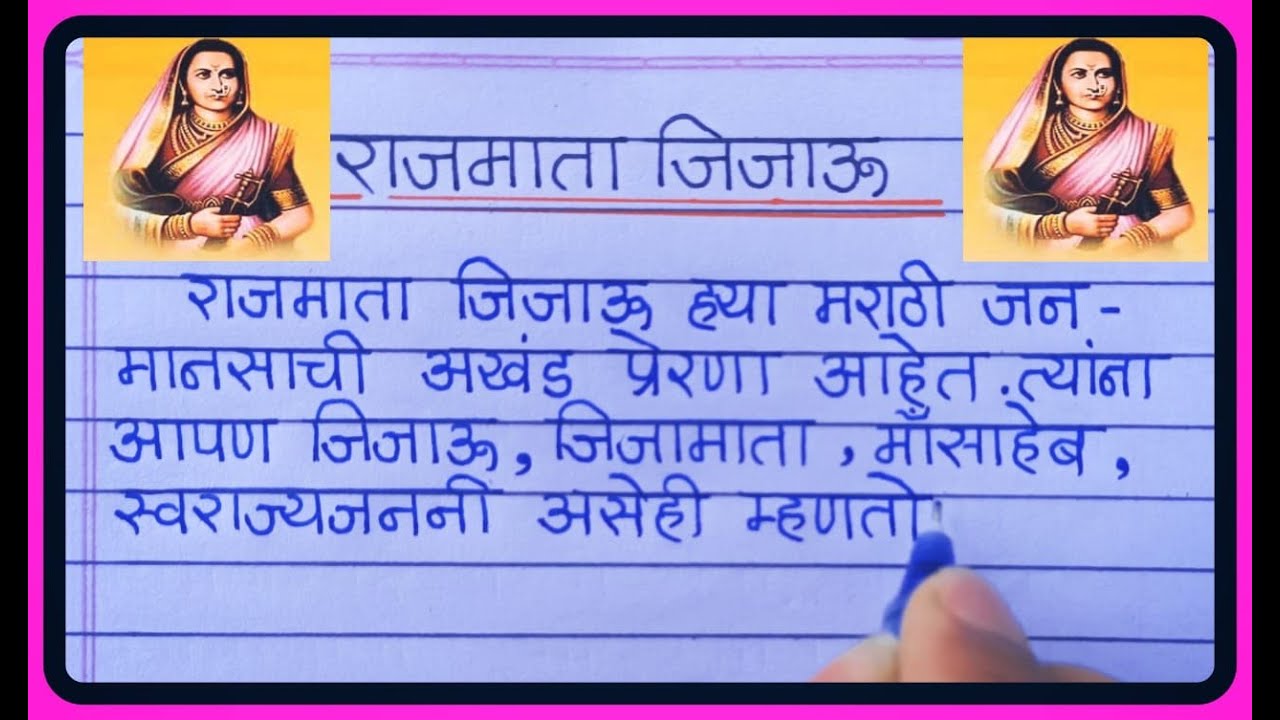 राजमाता जिजाऊ
राजमाता जिजाऊ ह्या मराठी जन -
मानसाची अखंड प्रेरणा आहेत. त्यांना
आपण जिजाऊ, जिजामाता, माँसाहेब,
स्वराज्यजननी असेही म्हणतो